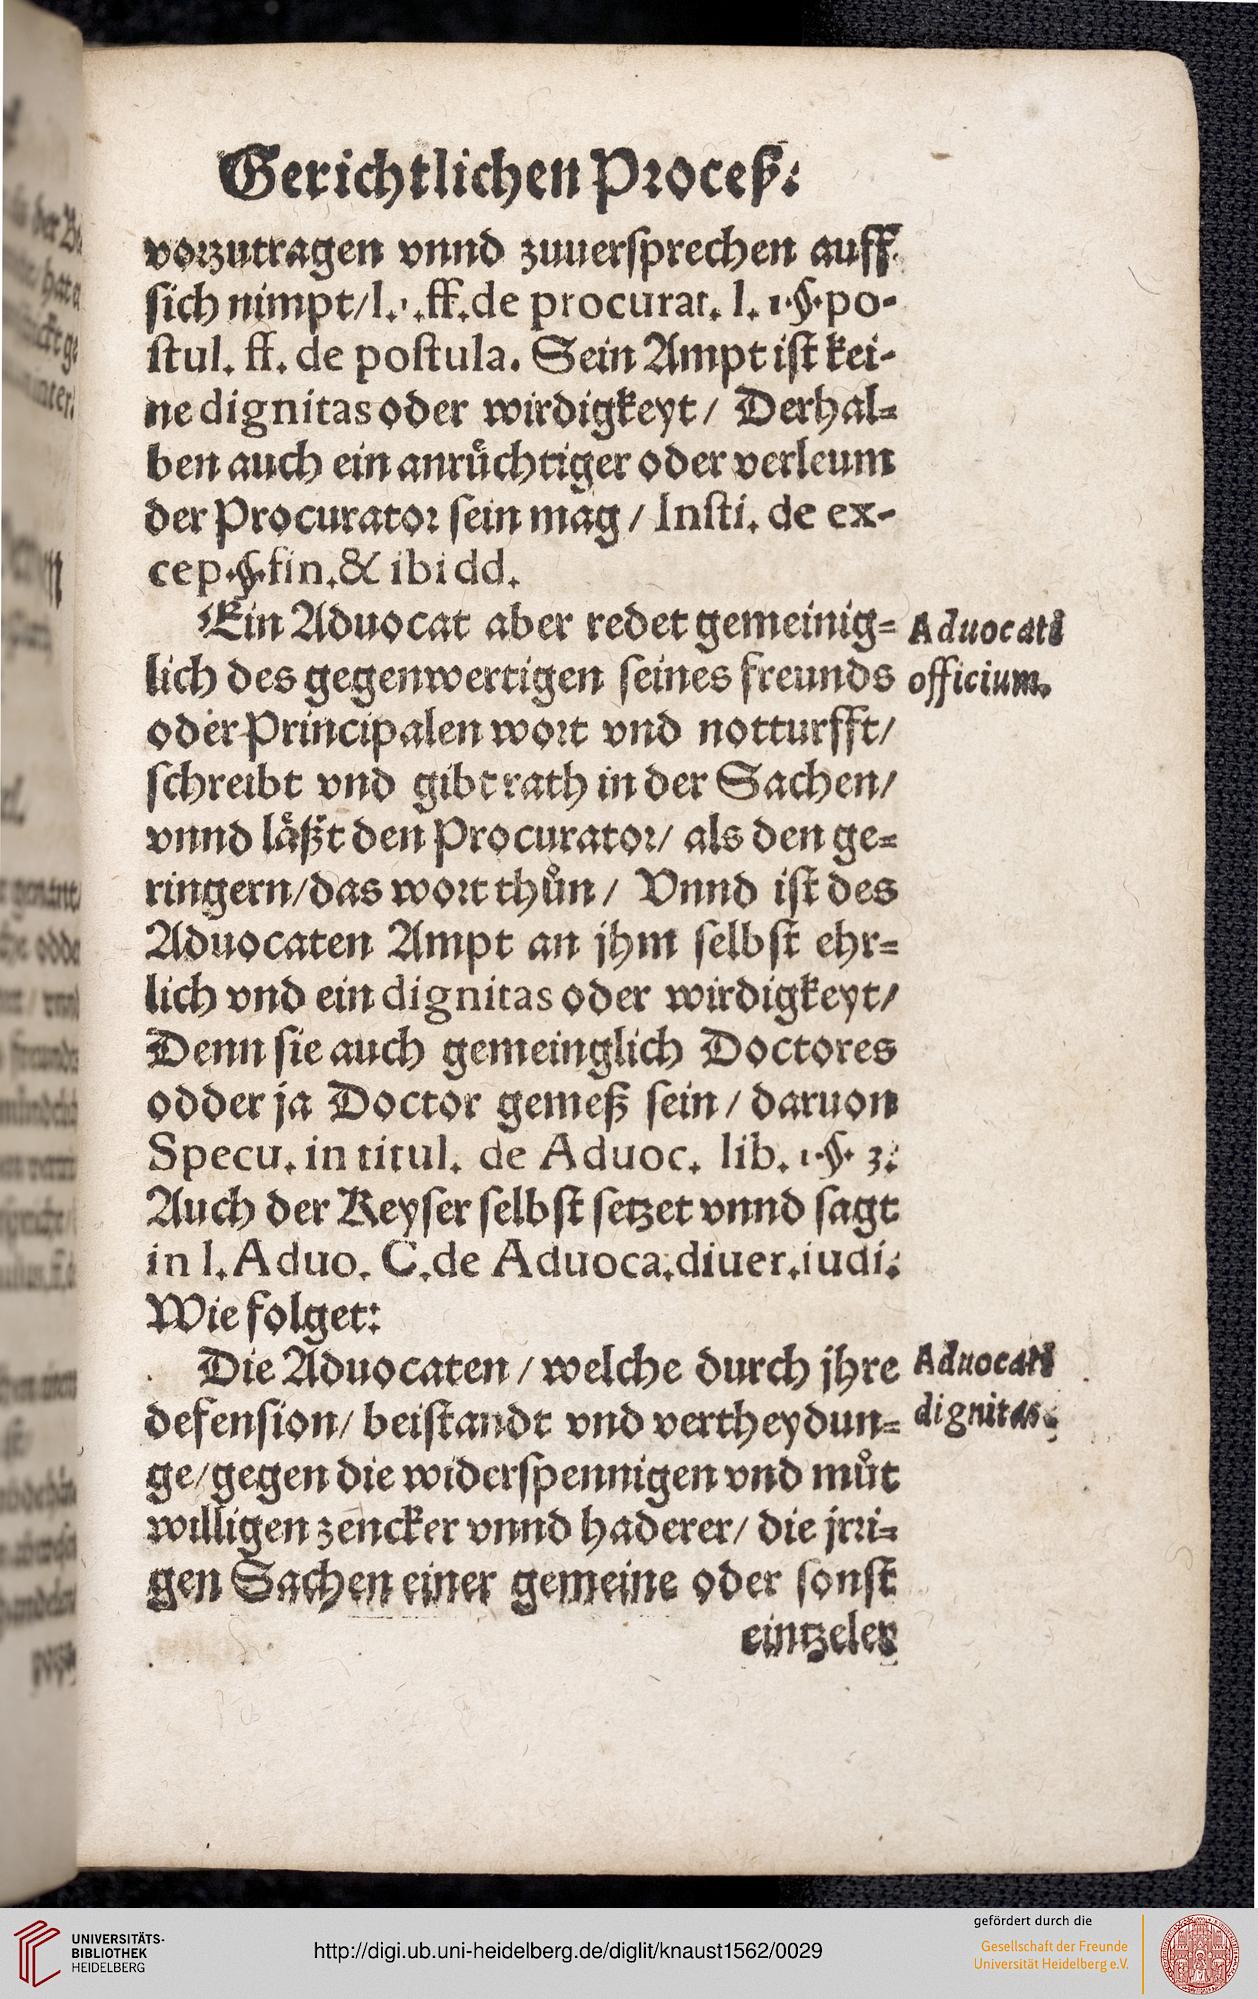 Gerichtlichen Proceß.
vorzutragen vnnd zuuersprechen auff
sich nimpt/l. 1. ff. de procurat. l. 1. §. po-
stul. ff. de postula. Sein Ampt ist kei-
ne dignitas oder wirdigkeyt/ Derhal-
ben auch ein anrüchtiger oder verleum
der Procurator sein mag/ Insti. de ex-
cep. §. fin. & ibi dd.
Ein Aduocat aber redet gemeinig-
Aduocati
lich des gegenwertigen seines freunds
officium.
oder Principalen wort vnd notturfft/
schreibt vnd gibt rath in der Sachen/
vnnd läßt den Procurator/ als den ge-
ringern/das wort thůn/ Vnnd ist des
Aduocaten Ampt an jhm selbst ehr-
lich vnd ein dignitas oder wirdigkeyt/
Denn sie auch gemeinglich Doctores
odder ja Doctor gemeß sein/ daruon
Specu. in titul. de Aduoc. lib. 1. §. 3.
Auch der Keyser selbst setzet vnnd sagt
in l. Aduo. C. de Aduoca. diuer. iudi.
Wie folget:
Die Aduocaten/ welche durch jhre
Aduocati
defension/ beistandt vnd vertheydun-
dignitas.
ge/gegen die widerspennigen vnd můt
willigen zencker vnnd haderer/ die jrri-
gen Sachen einer gemeine oder sonst
eintzeler
UNIVERSITÄTS-
BIBLIOTHEK
HEIDELBERG
http://digi.ub.uni-heidelberg.de/diglit/knaust1562/0029
gefördert durch die
Gesellschaft der Freunde
Universität Heidelberg e.V.